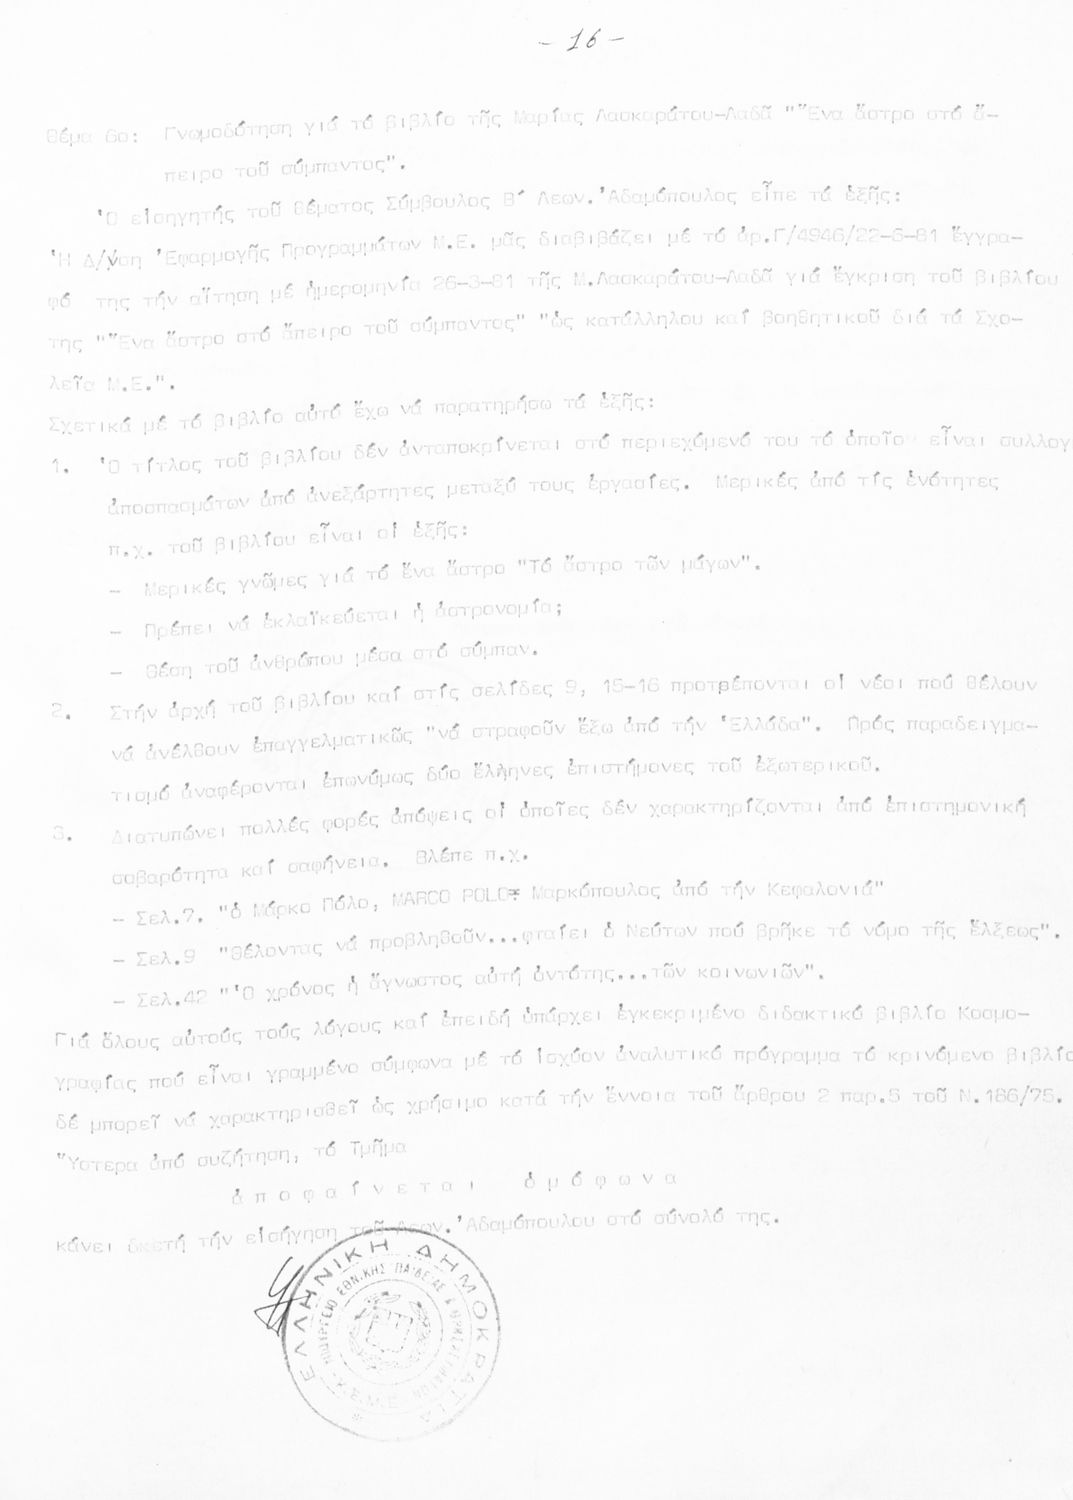 - 16 -
Θέμα 6ο: Γνωμοδότηση γιά τό βιβλίο τῆς Μαρίας Λασκαράτου-Λαδᾶ "Ἕνα ἄστρο στό ἄ-
πειρο τοῦ σύμπαντος".
Ὁ εἰσηγητής τοῦ θέματος Σύμβουλος Β΄ Λεων. Ἀδαμόπουλος εἶπε τά ἑξῆς:
Ἡ Δ/νση Ἐφαρμογῆς Προγραμμάτων Μ.Ε. μᾶς διαβιβάζει μέ τό ἀρ.Γ/4946/22-5-81 ἔγγρα-
φό της τήν αἴτηση μέ ἡμερομηνία 26-3-81 τῆς Μ.Λασκαράτου-Λαδᾶ γιά ἔγκριση τοῦ βιβλίου
της "Ἕνα ἄστρο στό ἄπειρο τοῦ σύμπαντος" "ὡς κατάλληλου καί βοηθητικοῦ διά τά Σχο-
λεῖα Μ.Ε.".
Σχετικά μέ τό βιβλίο αὐτό ἔχω νά παρατηρήσω τά ἑξῆς:
1. Ὁ τίτλος τοῦ βιβλίου δέν ἀνταποκρίνεται στό περιεχόμενό του τό ὁποῖο εἶναι συλλογ
ἀποσπασμάτων ἀπό ἀνεξάρτητες μεταξύ τους ἐργασίες. Μερικές ἀπό τίς ἑνότητες
π.χ. τοῦ βιβλίου εἶναι οἱ ἑξῆς:
- Μερικές γνῶμες γιά τό ἕνα ἄστρο "Τό ἄστρο τῶν μάγων".
- Πρέπει νά ἐκλαϊκεύεται ἡ ἀστρονομία;
- Θέση τοῦ ἀνθρώπου μέσα στό σύμπαν.
2. Στήν ἀρχή τοῦ βιβλίου καί στίς σελίδες 9, 15-16 προτρέπονται οἱ νέοι πού θέλουν
νά ἀνέλθουν ἐπαγγελματικῶς "νά στραφοῦν ἔξω ἀπό τήν Ἑλλάδα". Πρός παραδειγμα-
τισμό ἀναφέρονται ἐπωνύμως δύο ἕλληνες ἐπιστήμονες τοῦ ἐξωτερικοῦ.
3. Διατυπώνει πολλές φορές ἀπόψεις οἱ ὁποῖες δέν χαρακτηρίζονται ἀπό ἐπιστημονική
σοβαρότητα καί σαφήνεια. Βλέπε π.χ.
- Σελ.7. "ὁ Μάρκο Πόλο, MARCO POLO: Μαρκόπουλος ἀπό τήν Κεφαλονιά"
- Σελ.9 "Θέλοντας νά προβληθοῦν...φταίει ὁ Νεύτων πού βρῆκε τό νόμο τῆς ἕλξεως".
- Σελ.42 "Ὁ χρόνος ἡ ἄγνωστος αὐτή ὀντότης...τῶν κοινωνιῶν".
Γιά ὅλους αὐτούς τούς λόγους καί ἐπειδή ὑπάρχει ἐγκεκριμένο διδακτικό βιβλίο Κοσμο-
γραφίας πού εἶναι γραμμένο σύμφωνα μέ τό ἰσχύον ἀναλυτικό πρόγραμμα τό κρινόμενο βιβλίο
δέ μπορεῖ νά χαρακτηρισθεῖ ὡς χρήσιμο κατά τήν ἔννοια τοῦ ἄρθρου 2 παρ.5 τοῦ Ν.186/75.
Ὕστερα ἀπό συζήτηση, τό Τμῆμα
ἀ π ο φ α ί ν ε τ α ι ὁ μ ό φ ω ν α
κάνει δεκτή τήν εἰσήγηση τοῦ Λεων. Ἀδαμόπουλου στό σύνολό της.
ΕΛΛΗΝΙΚΗ ΔΗΜΟΚΡΑΤΙΑ
Κ.Ε.Μ.Ε.